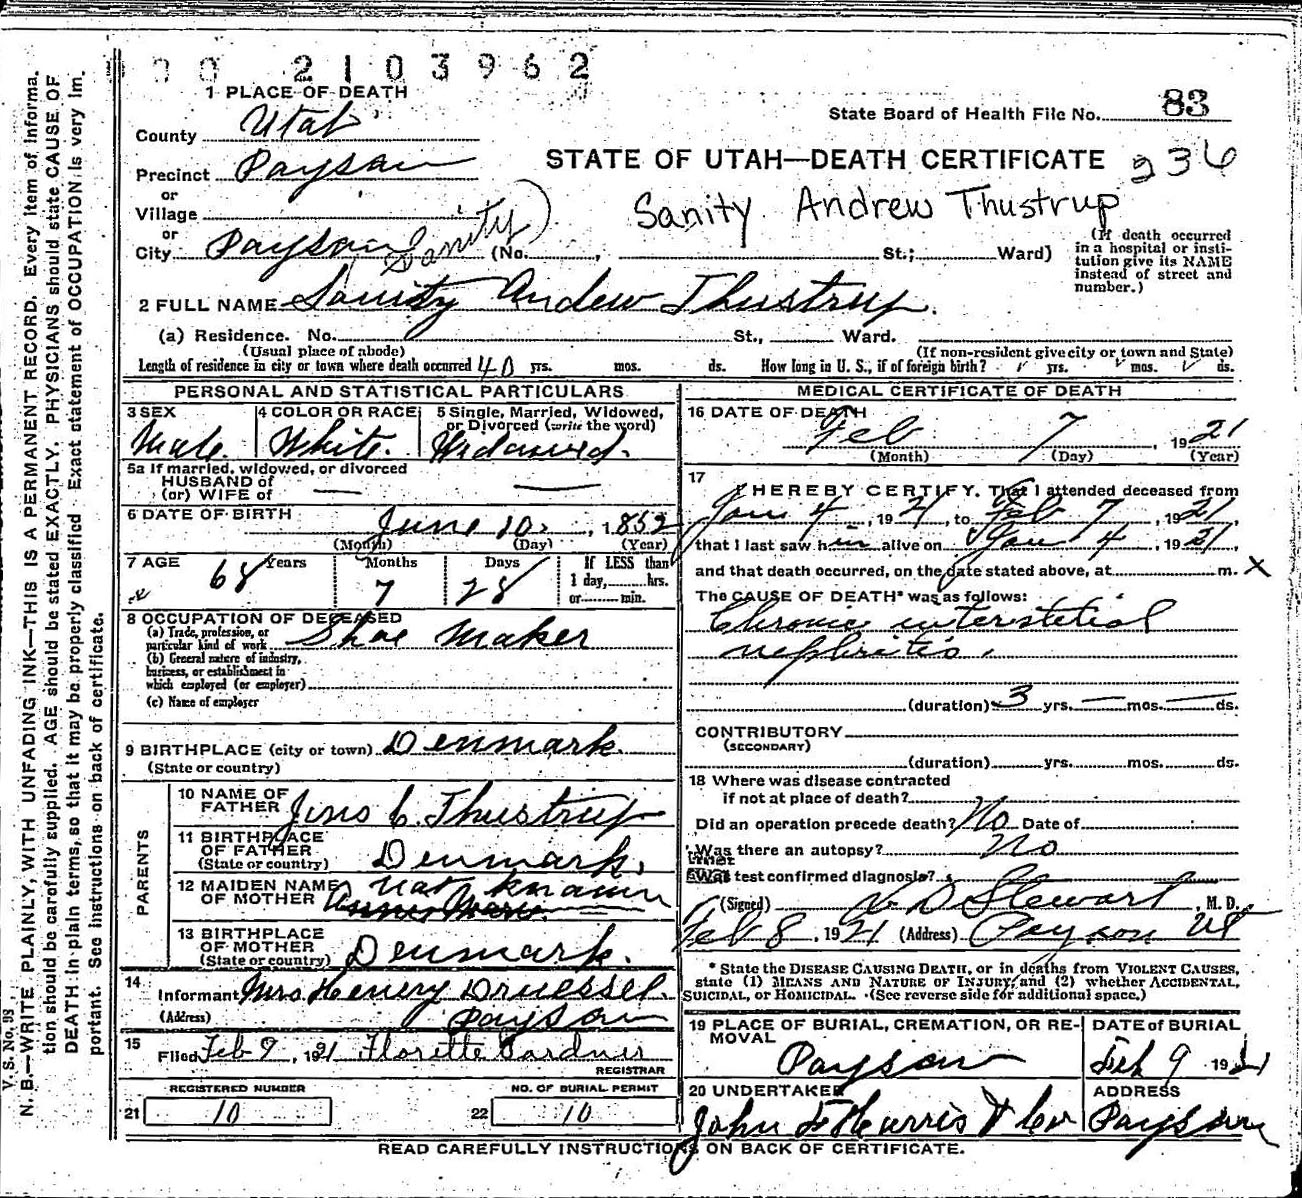 00 2103962
1 PLACE OF DEATH
State Board of Health File No. 83
County Utah
STATE OF UTAH—DEATH CERTIFICATE 236
Precinct Payson
or
Village
Sanity Andrew Thustrup
or
City Payson Sanity) (No. , St.; Ward)
(If death occurred
in a hospital or insti-
tution give its NAME
instead of street and
number.)
2 FULL NAME Sanity Andrew Thustrup.
(a) Residence. No. St., Ward.
(Usual place of abode) (If non-resident give city or town and State)
Length of residence in city or town where death occurred 40 yrs. mos. ds. How long in U. S., if of foreign birth? yrs. mos. ds.
PERSONAL AND STATISTICAL PARTICULARS
3 SEX Male.
4 COLOR OR RACE White.
5 Single, Married, Widowed,
or Divorced (write the word)
Widowed.
5a If married, widowed, or divorced
HUSBAND of
(or) WIFE of
6 DATE OF BIRTH
June 10. , 1852
(Month) (Day) (Year)
7 AGE 68 Years 7 Months 28 Days
If LESS than
1 day, hrs.
or min.
8 OCCUPATION OF DECEASED
(a) Trade, profession, or
particular kind of work Shoe Maker
(b) General nature of industry,
business, or establishment in
which employed (or employer)
(c) Name of employer
9 BIRTHPLACE (city or town) Denmark.
(State or country)
PARENTS
10 NAME OF
FATHER Jens C. Thustrup
11 BIRTHPLACE
OF FATHER
(State or country) Denmark.
12 MAIDEN NAME
OF MOTHER Not known
13 BIRTHPLACE
OF MOTHER
(State or country) Denmark.
14
Informant Mrs Henery Druessel.
(Address) Payson
15
Filed Feb 9, 1921 Florette Gardner
REGISTRAR
REGISTERED NUMBER NO. OF BURIAL PERMIT
21 10 22 10
MEDICAL CERTIFICATE OF DEATH
16 DATE OF DEATH
Feb 7 , 1921
(Month) (Day) (Year)
17
I HEREBY CERTIFY, That I attended deceased from
Jan 4, 1921, to Feb 7, 1921,
that I last saw him alive on Jan 4, 1921,
and that death occurred, on the date stated above, at m. X
The CAUSE OF DEATH* was as follows:
Chronic interstetial
nephritis.
(duration) 3 yrs. — mos. — ds.
CONTRIBUTORY
(SECONDARY)
(duration) yrs. mos. ds.
18 Where was disease contracted
if not at place of death?
Did an operation precede death? No Date of
Was there an autopsy? No
What test confirmed diagnosis?
(Signed) D Stewart, M. D.
Feb 8, 1921 (Address) Payson Ut
* State the DISEASE CAUSING DEATH, or in deaths from VIOLENT CAUSES,
state (1) MEANS AND NATURE OF INJURY; and (2) whether ACCIDENTAL,
SUICIDAL, or HOMICIDAL. (See reverse side for additional space.)
19 PLACE OF BURIAL, CREMATION, OR RE-
MOVAL
Payson
DATE of BURIAL
Feb 9 1921
20 UNDERTAKER
John F Harris & Co
ADDRESS
Payson
READ CAREFULLY INSTRUCTIONS ON BACK OF CERTIFICATE.
V. S. No. 98
N. B.—WRITE PLAINLY, WITH UNFADING INK—THIS IS A PERMANENT RECORD. Every item of informa-
tion should be carefully supplied. AGE should be stated EXACTLY. PHYSICIANS should state CAUSE OF
DEATH in plain terms, so that it may be properly classified. Exact statement of OCCUPATION is very im-
portant. See instructions on back of certificate.